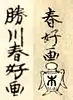 勝川春好画
春好画